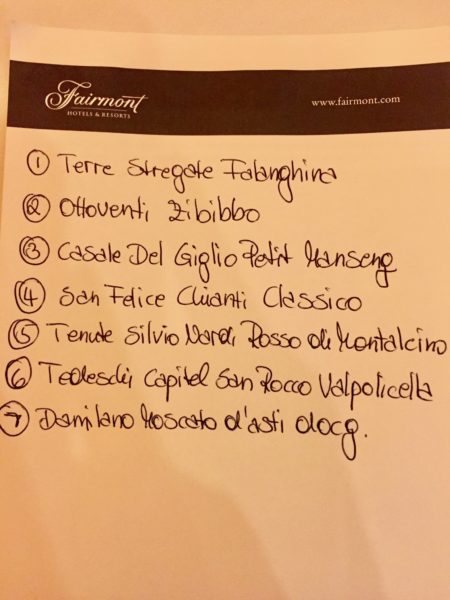 Fairmont
HOTELS & RESORTS
www.fairmont.com
1 Terre Stregate Falanghina
2 Ottoventi Zibibbo
3 Casale Del Giglio Petit Manseng
4 San Felice Chianti Classico
5 Tenute Silvio Nardi Rosso di Montalcino
6 Tedeschi Capitel San Rocco Valpolicella
7 Damilano Moscato d'asti docg.